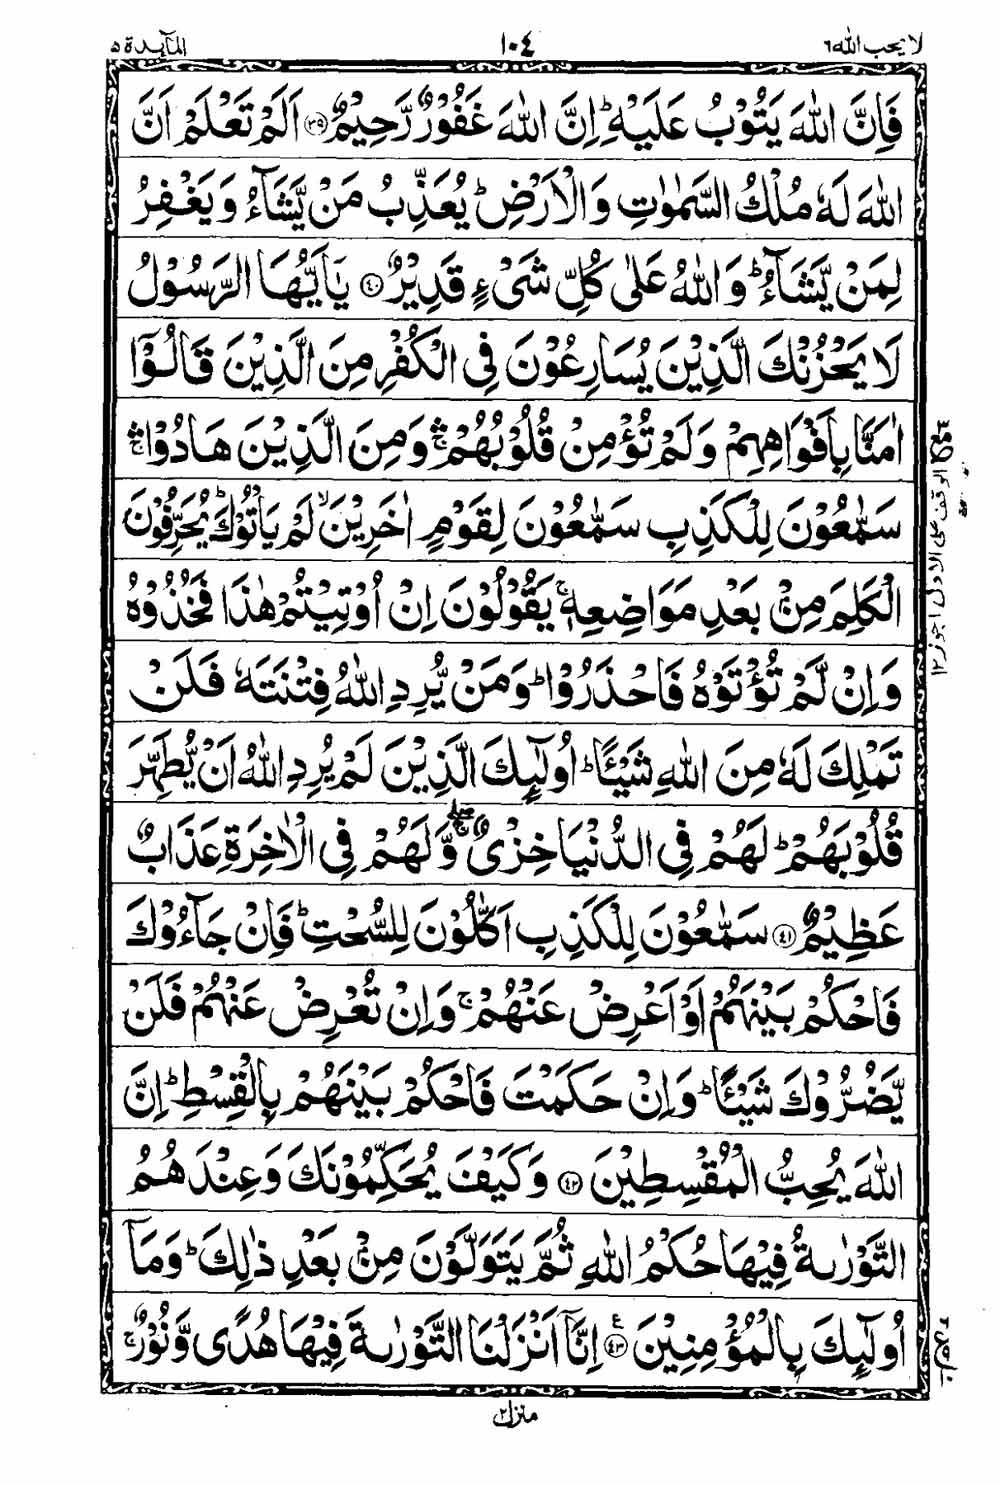 لا يحب الله ٦ ١٠٤ المآئدة ٥
فَاِنَّ اللّٰهَ يَتُوْبُ عَلَيْهِ ؕ اِنَّ اللّٰهَ غَفُوْرٌ رَّحِيْمٌ ﴿۳۹﴾ اَلَمْ تَعْلَمْ اَنَّ
اللّٰهَ لَهٗ مُلْكُ السَّمٰوٰتِ وَالْاَرْضِ ؕ يُعَذِّبُ مَنْ يَّشَآءُ وَيَغْفِرُ
لِمَنْ يَّشَآءُ ؕ وَاللّٰهُ عَلٰى كُلِّ شَىْءٍ قَدِيْرٌ ﴿٤٠﴾ يٰۤاَيُّهَا الرَّسُوْلُ
لَا يَحْزُنْكَ الَّذِيْنَ يُسَارِعُوْنَ فِى الْكُفْرِ مِنَ الَّذِيْنَ قَالُوْۤا
اٰمَنَّا بِاَفْوَاهِهِمْ وَلَمْ تُؤْمِنْ قُلُوْبُهُمْ ۛۚ وَمِنَ الَّذِيْنَ هَادُوْا ۛۚ
سَمّٰعُوْنَ لِلْكَذِبِ سَمّٰعُوْنَ لِقَوْمٍ اٰخَرِيْنَ ۙ لَمْ يَاْتُوْكَ ؕ يُحَرِّفُوْنَ
الْكَلِمَ مِنْۢ بَعْدِ مَوَاضِعِهٖ ۚ يَقُوْلُوْنَ اِنْ اُوْتِيْتُمْ هٰذَا فَخُذُوْهُ
وَاِنْ لَّمْ تُؤْتَوْهُ فَاحْذَرُوْا ؕ وَمَنْ يُّرِدِ اللّٰهُ فِتْنَتَهٗ فَلَنْ
تَمْلِكَ لَهٗ مِنَ اللّٰهِ شَيْـًٔا ؕ اُولٰٓئِكَ الَّذِيْنَ لَمْ يُرِدِ اللّٰهُ اَنْ يُّطَهِّرَ
قُلُوْبَهُمْ ؕ لَهُمْ فِى الدُّنْيَا خِزْىٌ ۖۚ وَّلَهُمْ فِى الْاٰخِرَةِ عَذَابٌ
عَظِيْمٌ ﴿٤١﴾ سَمّٰعُوْنَ لِلْكَذِبِ اَكّٰلُوْنَ لِلسُّحْتِ ؕ فَاِنْ جَآءُوْكَ
فَاحْكُمْ بَيْنَهُمْ اَوْ اَعْرِضْ عَنْهُمْ ۚ وَاِنْ تُعْرِضْ عَنْهُمْ فَلَنْ
يَّضُرُّوْكَ شَيْـًٔا ؕ وَاِنْ حَكَمْتَ فَاحْكُمْ بَيْنَهُمْ بِالْقِسْطِ ؕ اِنَّ
اللّٰهَ يُحِبُّ الْمُقْسِطِيْنَ ﴿٤٢﴾ وَكَيْفَ يُحَكِّمُوْنَكَ وَعِنْدَهُمُ
التَّوْرٰىةُ فِيْهَا حُكْمُ اللّٰهِ ثُمَّ يَتَوَلَّوْنَ مِنْۢ بَعْدِ ذٰلِكَ ؕ وَمَاۤ
اُولٰٓئِكَ بِالْمُؤْمِنِيْنَ ﴿٤٣﴾ ع اِنَّاۤ اَنْزَلْنَا التَّوْرٰىةَ فِيْهَا هُدًى وَّنُوْرٌ ۚ
منزل ٢
الوقف على الاول اجوز ١٢